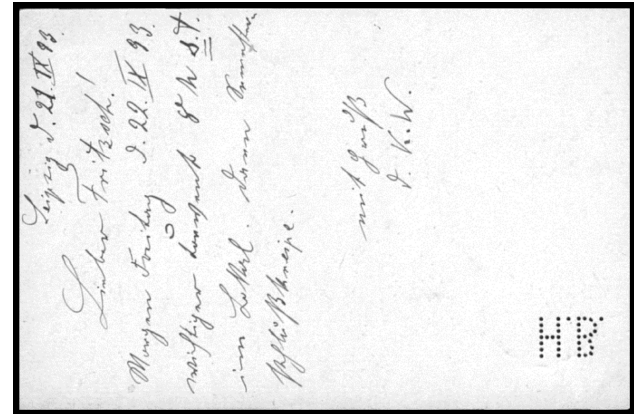 Leipzig d. 21. IX 93.
Lieber Fritzsch!
Morgen Freitag d. 22. IX 93
wichtiger Convent 8 h s.t.
im Lokal. Dann Semester
schlußkneipe.
mit Gruß
d. K. W.
H B